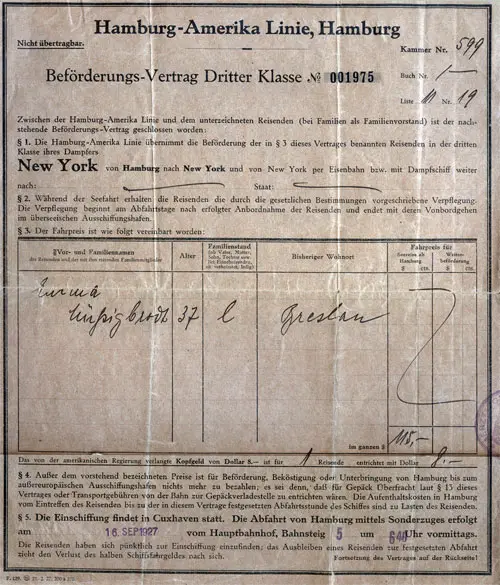 Hamburg-Amerika Linie, Hamburg
Nicht übertragbar.
Kammer Nr. 599
Beförderungs-Vertrag Dritter Klasse № 001975
Buch Nr. 1—
Liste 11 Nr. 19
Zwischen der Hamburg-Amerika Linie und dem unterzeichneten Reisenden (bei Familien als Familienvorstand) ist der nach-
stehende Beförderungs-Vertrag geschlossen worden:
§ 1. Die Hamburg-Amerika Linie übernimmt die Beförderung der in § 3 dieses Vertrages benannten Reisenden in der dritten
Klasse ihres Dampfers
New York von Hamburg nach New York und von New York per Eisenbahn bzw. mit Dampfschiff weiter
nach: Staat:
§ 2. Während der Seefahrt erhalten die Reisenden die durch die gesetzlichen Bestimmungen vorgeschriebene Verpflegung.
Die Verpflegung beginnt am Abfahrtstage nach erfolgter Anbordnahme der Reisenden und endet mit deren Vonbordgehen
im überseeischen Ausschiffungshafen.
§ 3. Der Fahrpreis ist wie folgt vereinbart worden:
Vor- und Familiennamen
der Reisenden und der mit ihm reisenden Familienmitglieder
Alter
Familienstand
Bisheriger Wohnort
Fahrpreis für
Seereise ab
Hamburg
Weiter-
beförderung
$ cts. $ cts.
Emma
37 l Breslau
im ganzen $ 115,-
Das von der amerikanischen Regierung verlangte Kopfgeld von Dollar 8.— ist für 1 Reisende entrichtet mit Dollar 8.-
§ 4. Außer dem vorstehend bezeichneten Preise ist für Beförderung, Beköstigung oder Unterbringung von Hamburg bis zum
außereuropäischen Ausschiffungshafen nichts mehr zu bezahlen; es sei denn, daß für Gepäck Überfracht laut § 13 dieses
Vertrages oder Transportgebühren von der Bahn zur Gepäckverladestelle zu entrichten wären. Die Aufenthaltskosten in Hamburg
vom Eintreffen des Reisenden bis zu der in diesem Vertrage festgesetzten Abfahrtsstunde des Schiffes sind zu Lasten des Reisenden.
§ 5. Die Einschiffung findet in Cuxhaven statt. Die Abfahrt von Hamburg mittels Sonderzuges erfolgt
am 16. SEP. 1927 vom Hauptbahnhof, Bahnsteig 5 um 640 Uhr vormittags.
Die Reisenden haben sich pünktlich zur Einschiffung einzufinden; das Ausbleiben eines Reisenden zur festgesetzten Abfahrt
zieht den Verlust des halben Schiffsfahrgeldes nach sich. Fortsetzung des Vertrages auf der Rückseite!